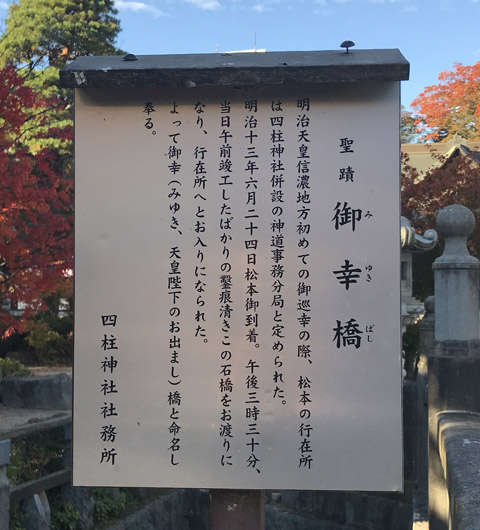 聖蹟 御幸橋
み ゆき ばし
明治天皇信濃地方初めての御巡幸の際、松本の行在所
は四柱神社併設の神道事務分局と定められた。
明治十三年六月二十四日松本御到着。午後三時三十分、
当日午前竣工したばかりの鑿痕清きこの石橋をお渡りに
なり、行在所へとお入りになられた。
よって御幸(みゆき、天皇陛下のお出まし)橋と命名し
奉る。
四柱神社社務所